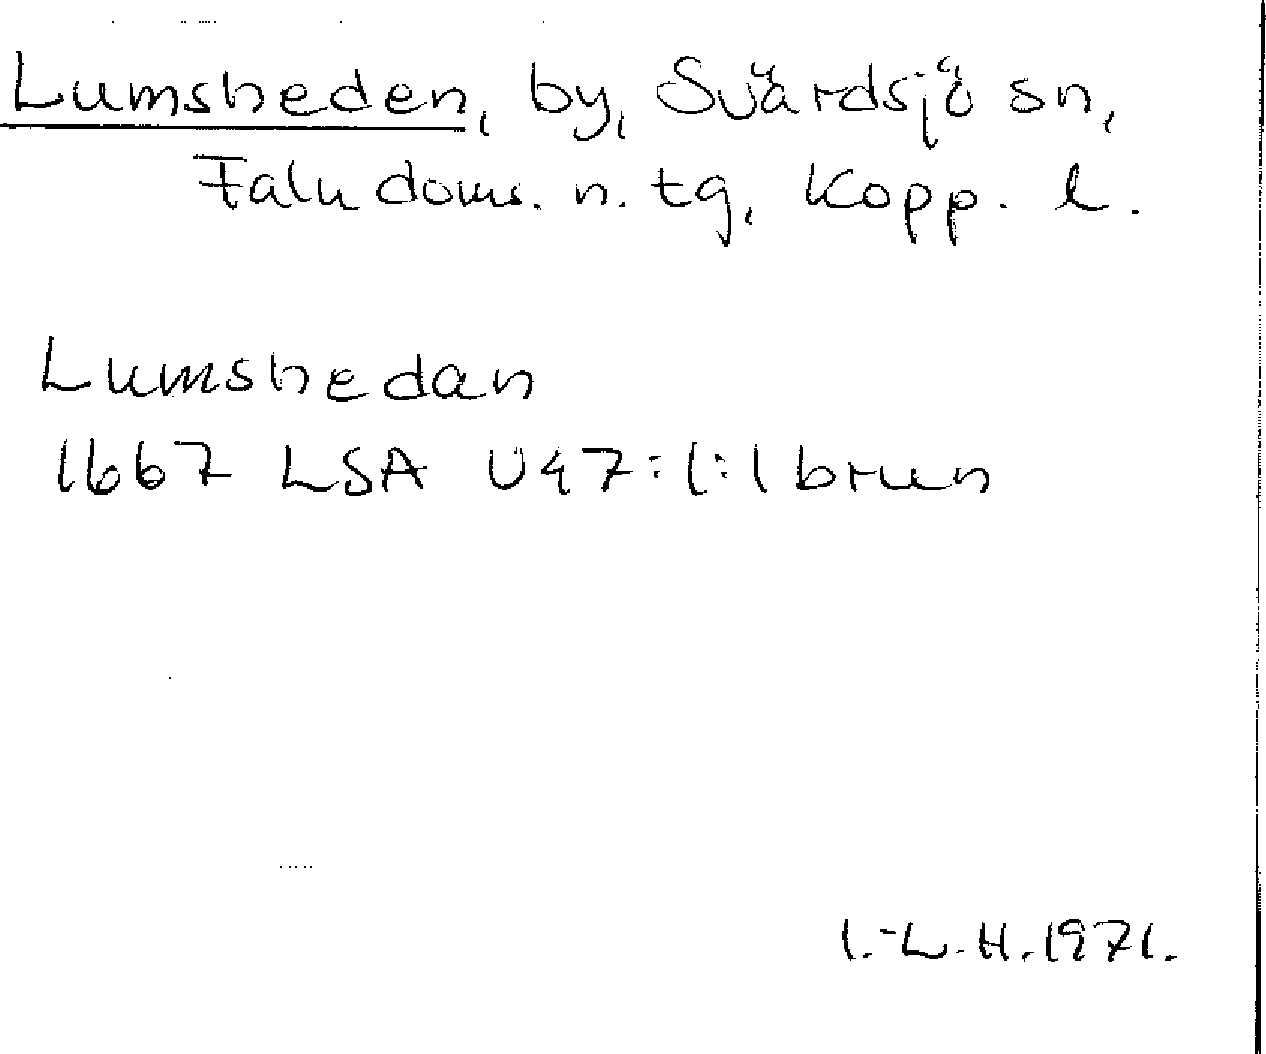 Lumsheden, by, Svärdsjö sn,
Falu doms. n. tg, Kopp. l.
Lumshedan
1667 LSA U47:1:1 brun
I.-L. H. 1971.